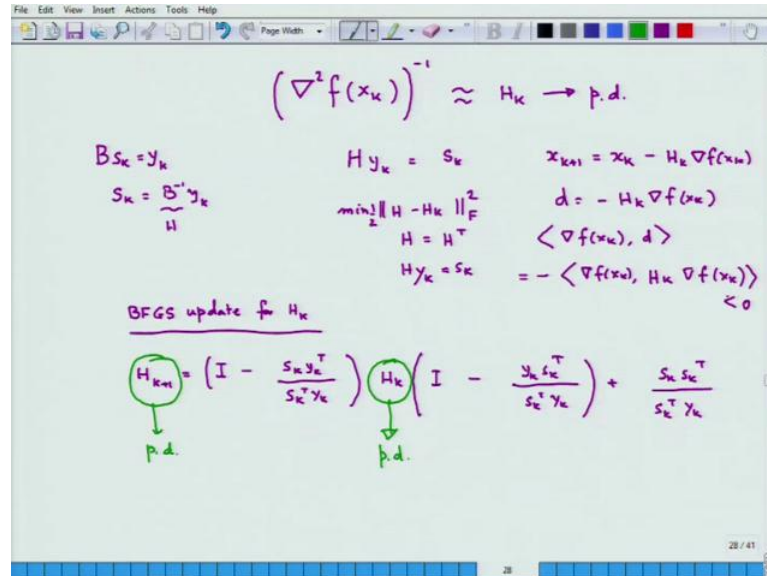 File Edit View Insert Actions Tools Help
Page Width B I
(∇²f(x_k))^{-1} ≈ H_k → p.d.
B s_k = y_k
s_k = B^{-1} y_k
H
H y_k = s_k
min ½ ‖H - H_k‖²_F
H = H^T
H y_k = s_k
x_{k+1} = x_k - H_k ∇f(x_k)
d = - H_k ∇f(x_k)
⟨∇f(x_k), d⟩
= - ⟨∇f(x_k), H_k ∇f(x_k)⟩
< 0
BFGS update for H_k
H_{k+1} = (I - \frac{s_k y_k^T}{s_k^T y_k}) H_k (I - \frac{y_k s_k^T}{s_k^T y_k}) + \frac{s_k s_k^T}{s_k^T y_k}
p.d. p.d.
28 / 41
28